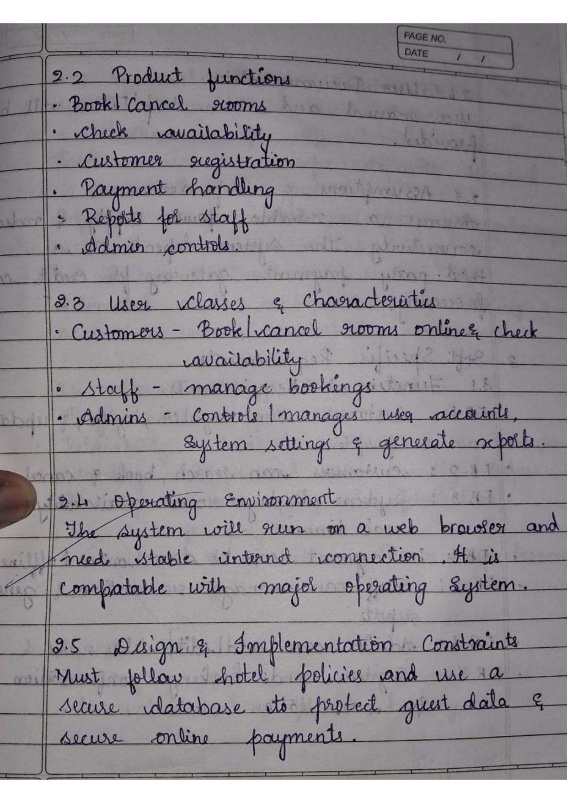 PAGE NO.
DATE / /
2.2 Product functions
· Book/Cancel rooms
· check availability
· Customer registration
· Payment handling
· Reports for staff
· Admin controls.
2.3 User classes & Characteristics
· Customers - Book/cancel rooms online & check
availability
· Staff - manage bookings
· Admins - Controls/manages user accounts,
System settings & generate reports.
2.4 Operating Environment
The system will run on a web browser and
need stable internet connection. It is
compatable with major operating System.
2.5 Design & Implementation Constraints
Must follow hotel policies and use a
secure database to protect guest data &
secure online payments.